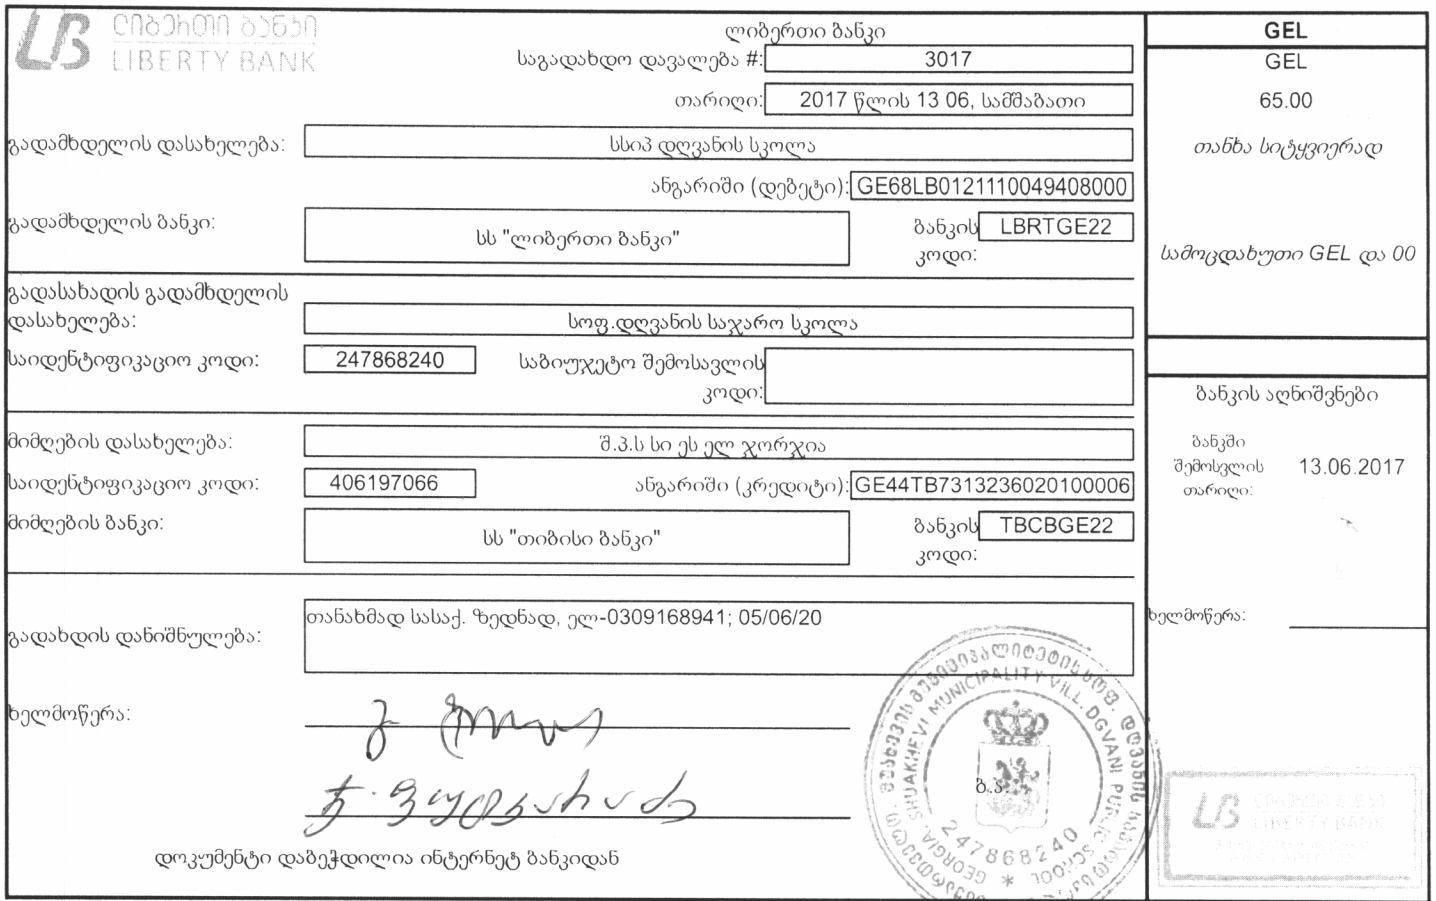 ლიბერთი ბანკი
LIBERTY BANK
ლიბერთი ბანკი
საგადახდო დავალება #: 3017
თარიღი: 2017 წლის 13 06, სამშაბათი
გადამხდელის დასახელება: სსიპ დღვანის სკოლა
ანგარიში (დებეტი): GE68LB0121110049408000
გადამხდელის ბანკი: სს "ლიბერთი ბანკი" ბანკის კოდი: LBRTGE22
გადასახადის გადამხდელის
დასახელება: სოფ.დღვანის საჯარო სკოლა
საიდენტიფიკაციო კოდი: 247868240 საბიუჯეტო შემოსავლის
კოდი:
მიმღების დასახელება: შ.პ.ს სი ეს ელ ჯორჯია
საიდენტიფიკაციო კოდი: 406197066 ანგარიში (კრედიტი): GE44TB7313236020100006
მიმღების ბანკი: სს "თიბისი ბანკი" ბანკის კოდი: TBCBGE22
გადახდის დანიშნულება: თანახმად სასაქ. ზედნად, ელ-0309168941; 05/06/20
ხელმოწერა:
ბ.ა.
დოკუმენტი დაბეჭდილია ინტერნეტ ბანკიდან
GEL
GEL
65.00
თანხა სიტყვიერად
სამოცდახუთი GEL და 00
ბანკის აღნიშვნები
ბანკში
შემოსვლის 13.06.2017
თარიღი:
ხელმოწერა:
შუახევის მუნიციპალიტეტის სოფ. დღვანის საჯარო
GEORGIA, SHUAKHEVI MUNICIPALITY VILL. DGVANI PUBLIC SCHOOL
247868240
ლიბერთი ბანკი
LIBERTY BANK